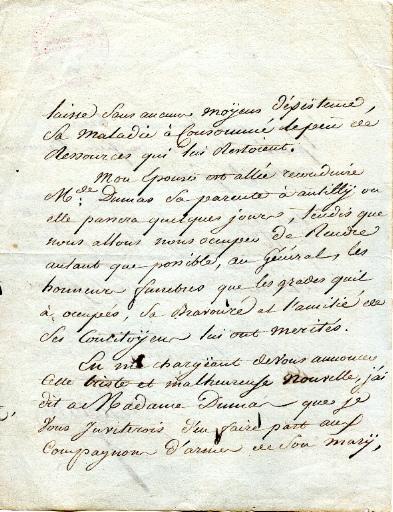 laissé sans aucuns moÿens d'éxistence,
sa maladie à Consommé le peu de
Ressources qui lui Restoient.
Mon Epouse est allée reconduire
M.de Dumas sa parente à antilly ou
elle passera quelques jours, tandis que
nous allons nous occuper de Rendre
autant que possible, au Général, les
honneurs funebres que les grades quil
à occupés, sa Bravoure et l'amitié de
Ses Concitoÿens lui ont merités.
En me chargeant de vous annoncer
Cette triste et malheureuse nouvelle, j'ai
dit à Madame Dumas que je
Vous Inviterois d'en faire part aux
Compagnons d'armes de Son mary,